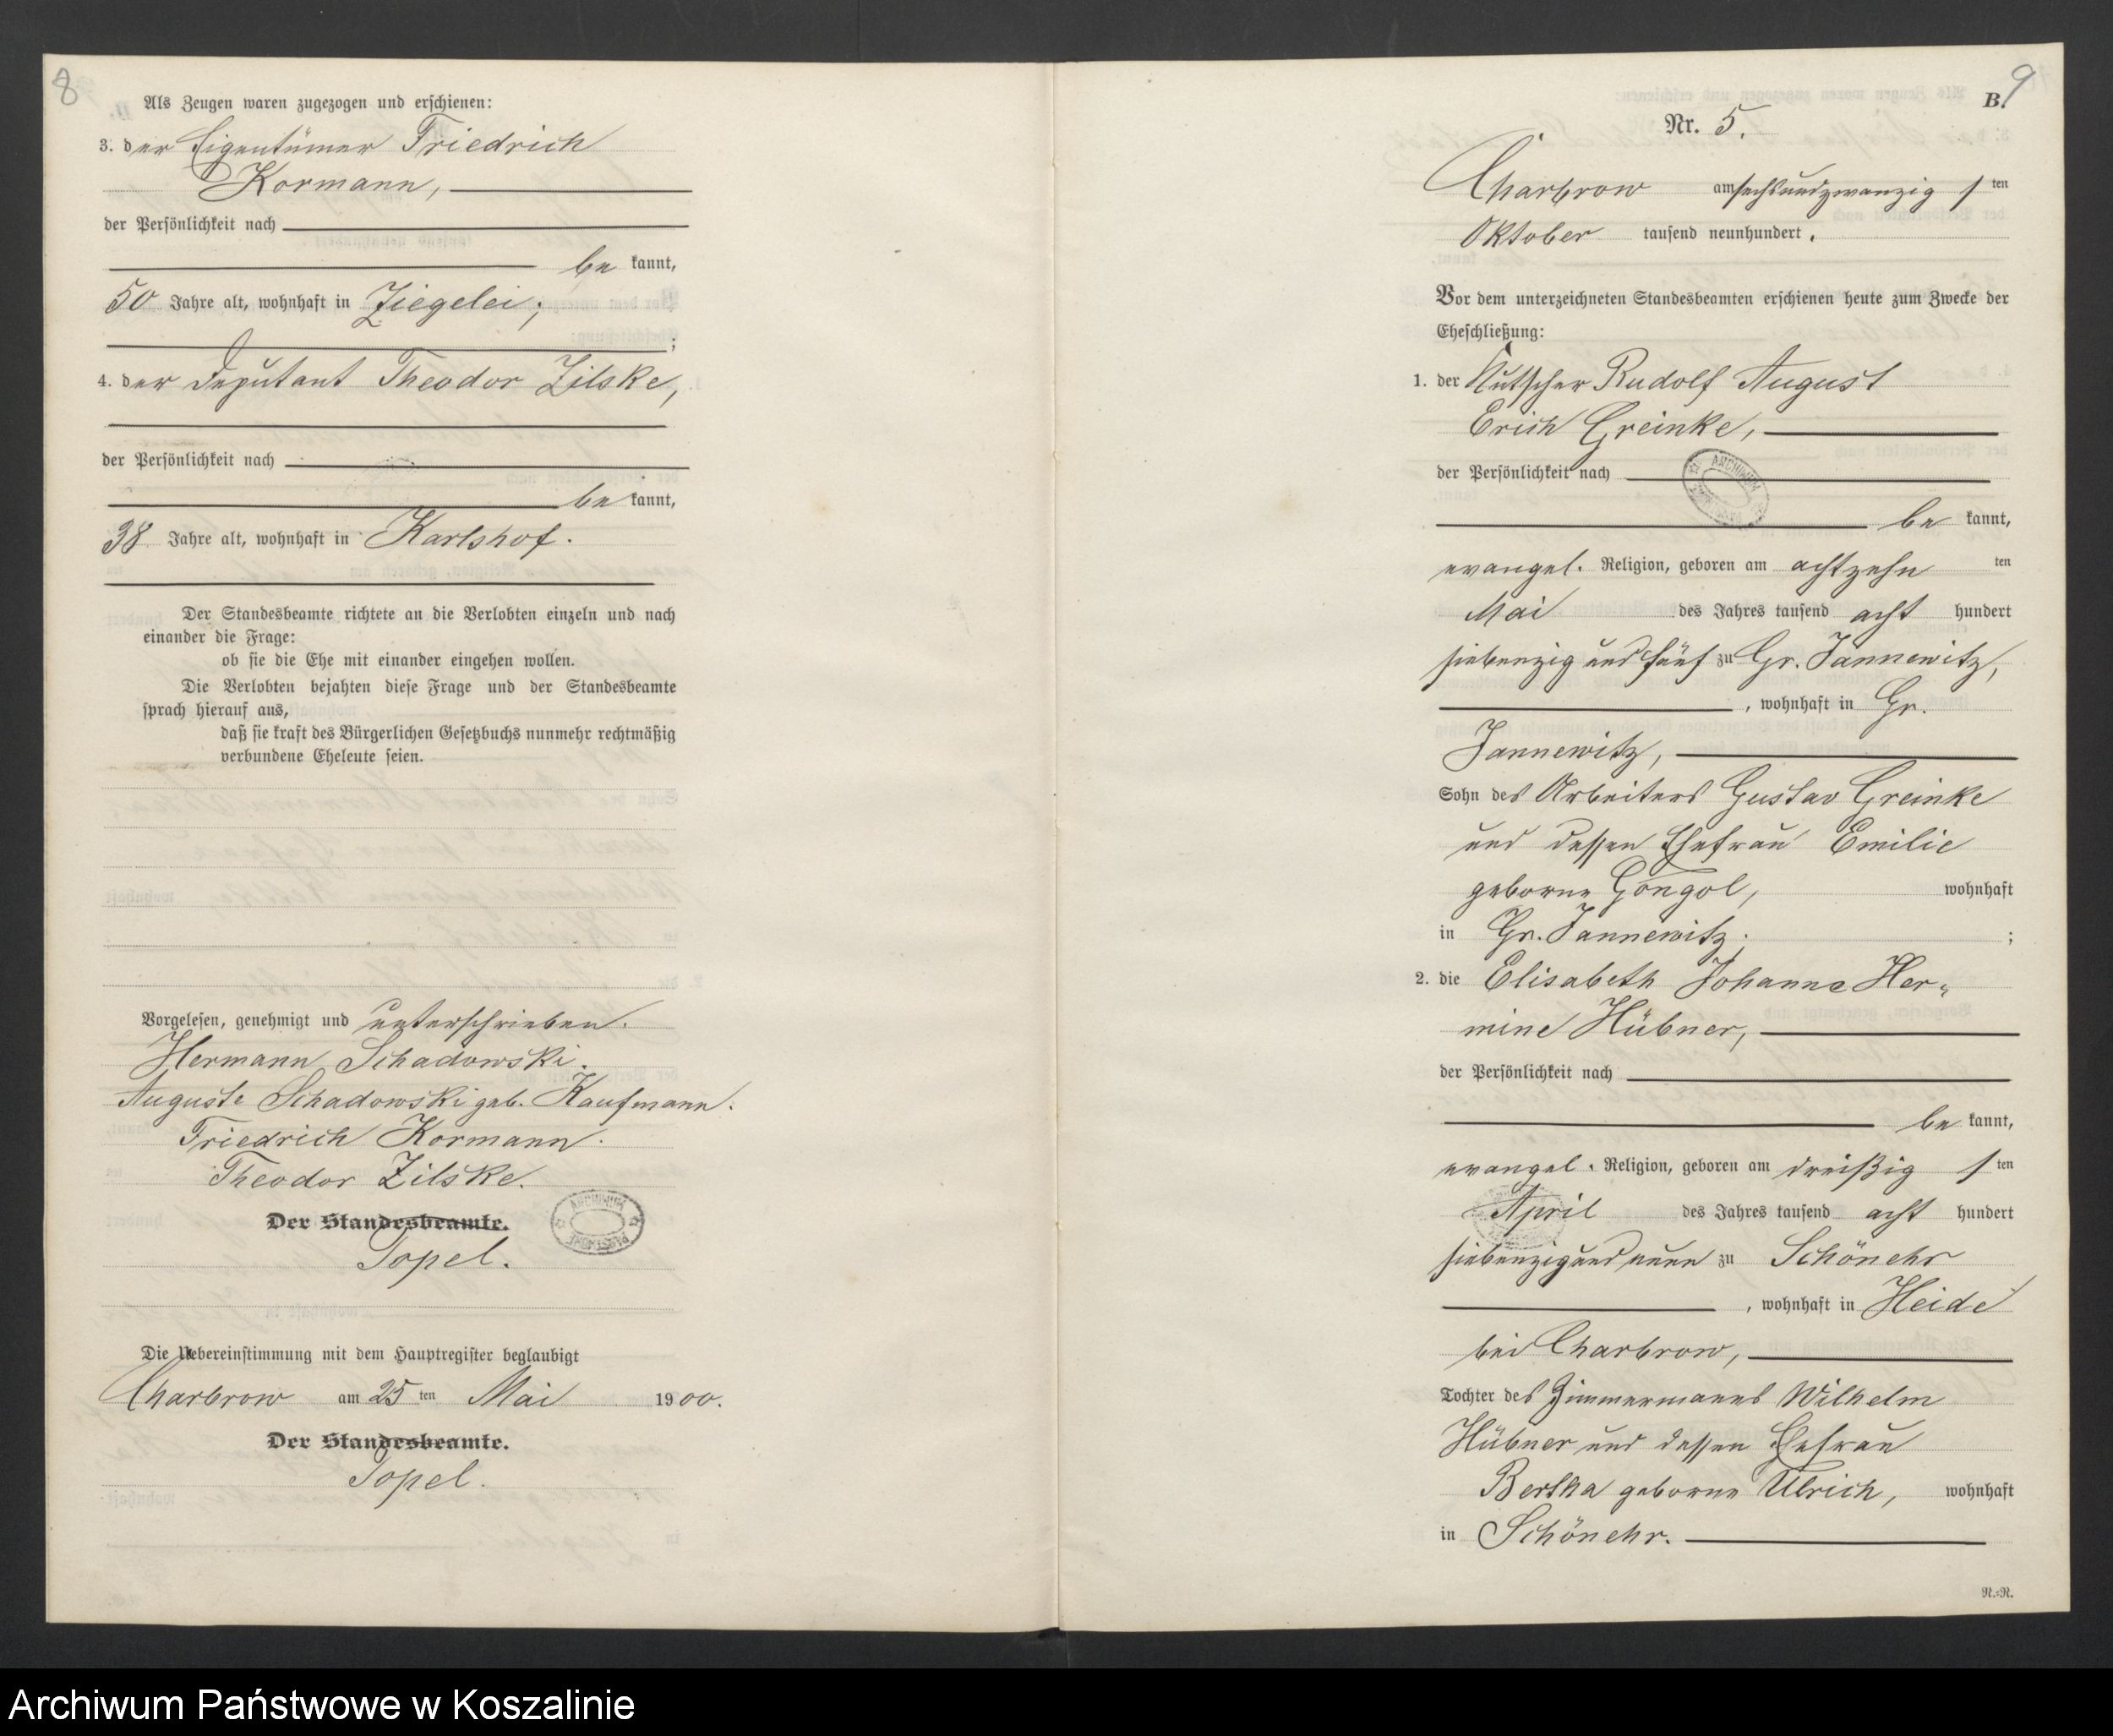 8
Als Zeugen waren zugezogen und erschienen:
3. der Eigentümer Friedrich
Kormann,
der Persönlichkeit nach
be kannt,
50 Jahre alt, wohnhaft in Ziegelei,
;
4. der Deputant Theodor Zilske,
der Persönlichkeit nach
be kannt,
38 Jahre alt, wohnhaft in Karlshof.
Der Standesbeamte richtete an die Verlobten einzeln und nach
einander die Frage:
ob sie die Ehe mit einander eingehen wollen.
Die Verlobten bejahten diese Frage und der Standesbeamte
sprach hierauf aus,
daß sie kraft des Bürgerlichen Gesetzbuchs nunmehr rechtmäßig
verbundene Eheleute seien.
Vorgelesen, genehmigt und unterschrieben.
Hermann Schadowski.
Auguste Schadowski geb. Kaufmann.
Friedrich Kormann.
Theodor Zilske.
Der Standesbeamte.
Topel.
Die Uebereinstimmung mit dem Hauptregister beglaubigt
Charbrow am 25 ten Mai 1900.
Der Standesbeamte.
Topel.
9
B.
Nr. 5.
Charbrow am sechsundzwanzig sten
Oktober tausend neunhundert.
Vor dem unterzeichneten Standesbeamten erschienen heute zum Zwecke der
Eheschließung:
1. der Kutscher Rudolf August
Erich Greinke,
der Persönlichkeit nach
ARCHIWUM
be kannt,
evangel. Religion, geboren am achtzehn ten
Mai des Jahres tausend acht hundert
siebenzig und fünf zu Gr. Jannewitz,
, wohnhaft in Gr.
Jannewitz,
Sohn des Arbeiters Gustav Greinke
und dessen Ehefrau Emilie
geborne Gongol, wohnhaft
in Gr. Jannewitz. ;
2. die Elisabeth Johanne Her-
mine Hübner,
der Persönlichkeit nach
be kannt,
evangel. Religion, geboren am dreißig sten
April des Jahres tausend acht hundert
siebenzig und neun zu Schönehr
, wohnhaft in Heide
bei Charbrow,
Tochter des Zimmermanns Wilhelm
Hübner und dessen Ehefrau
Bertha geborne Ulrich, wohnhaft
in Schönehr.
R.=R.
Archiwum Państwowe w Koszalinie